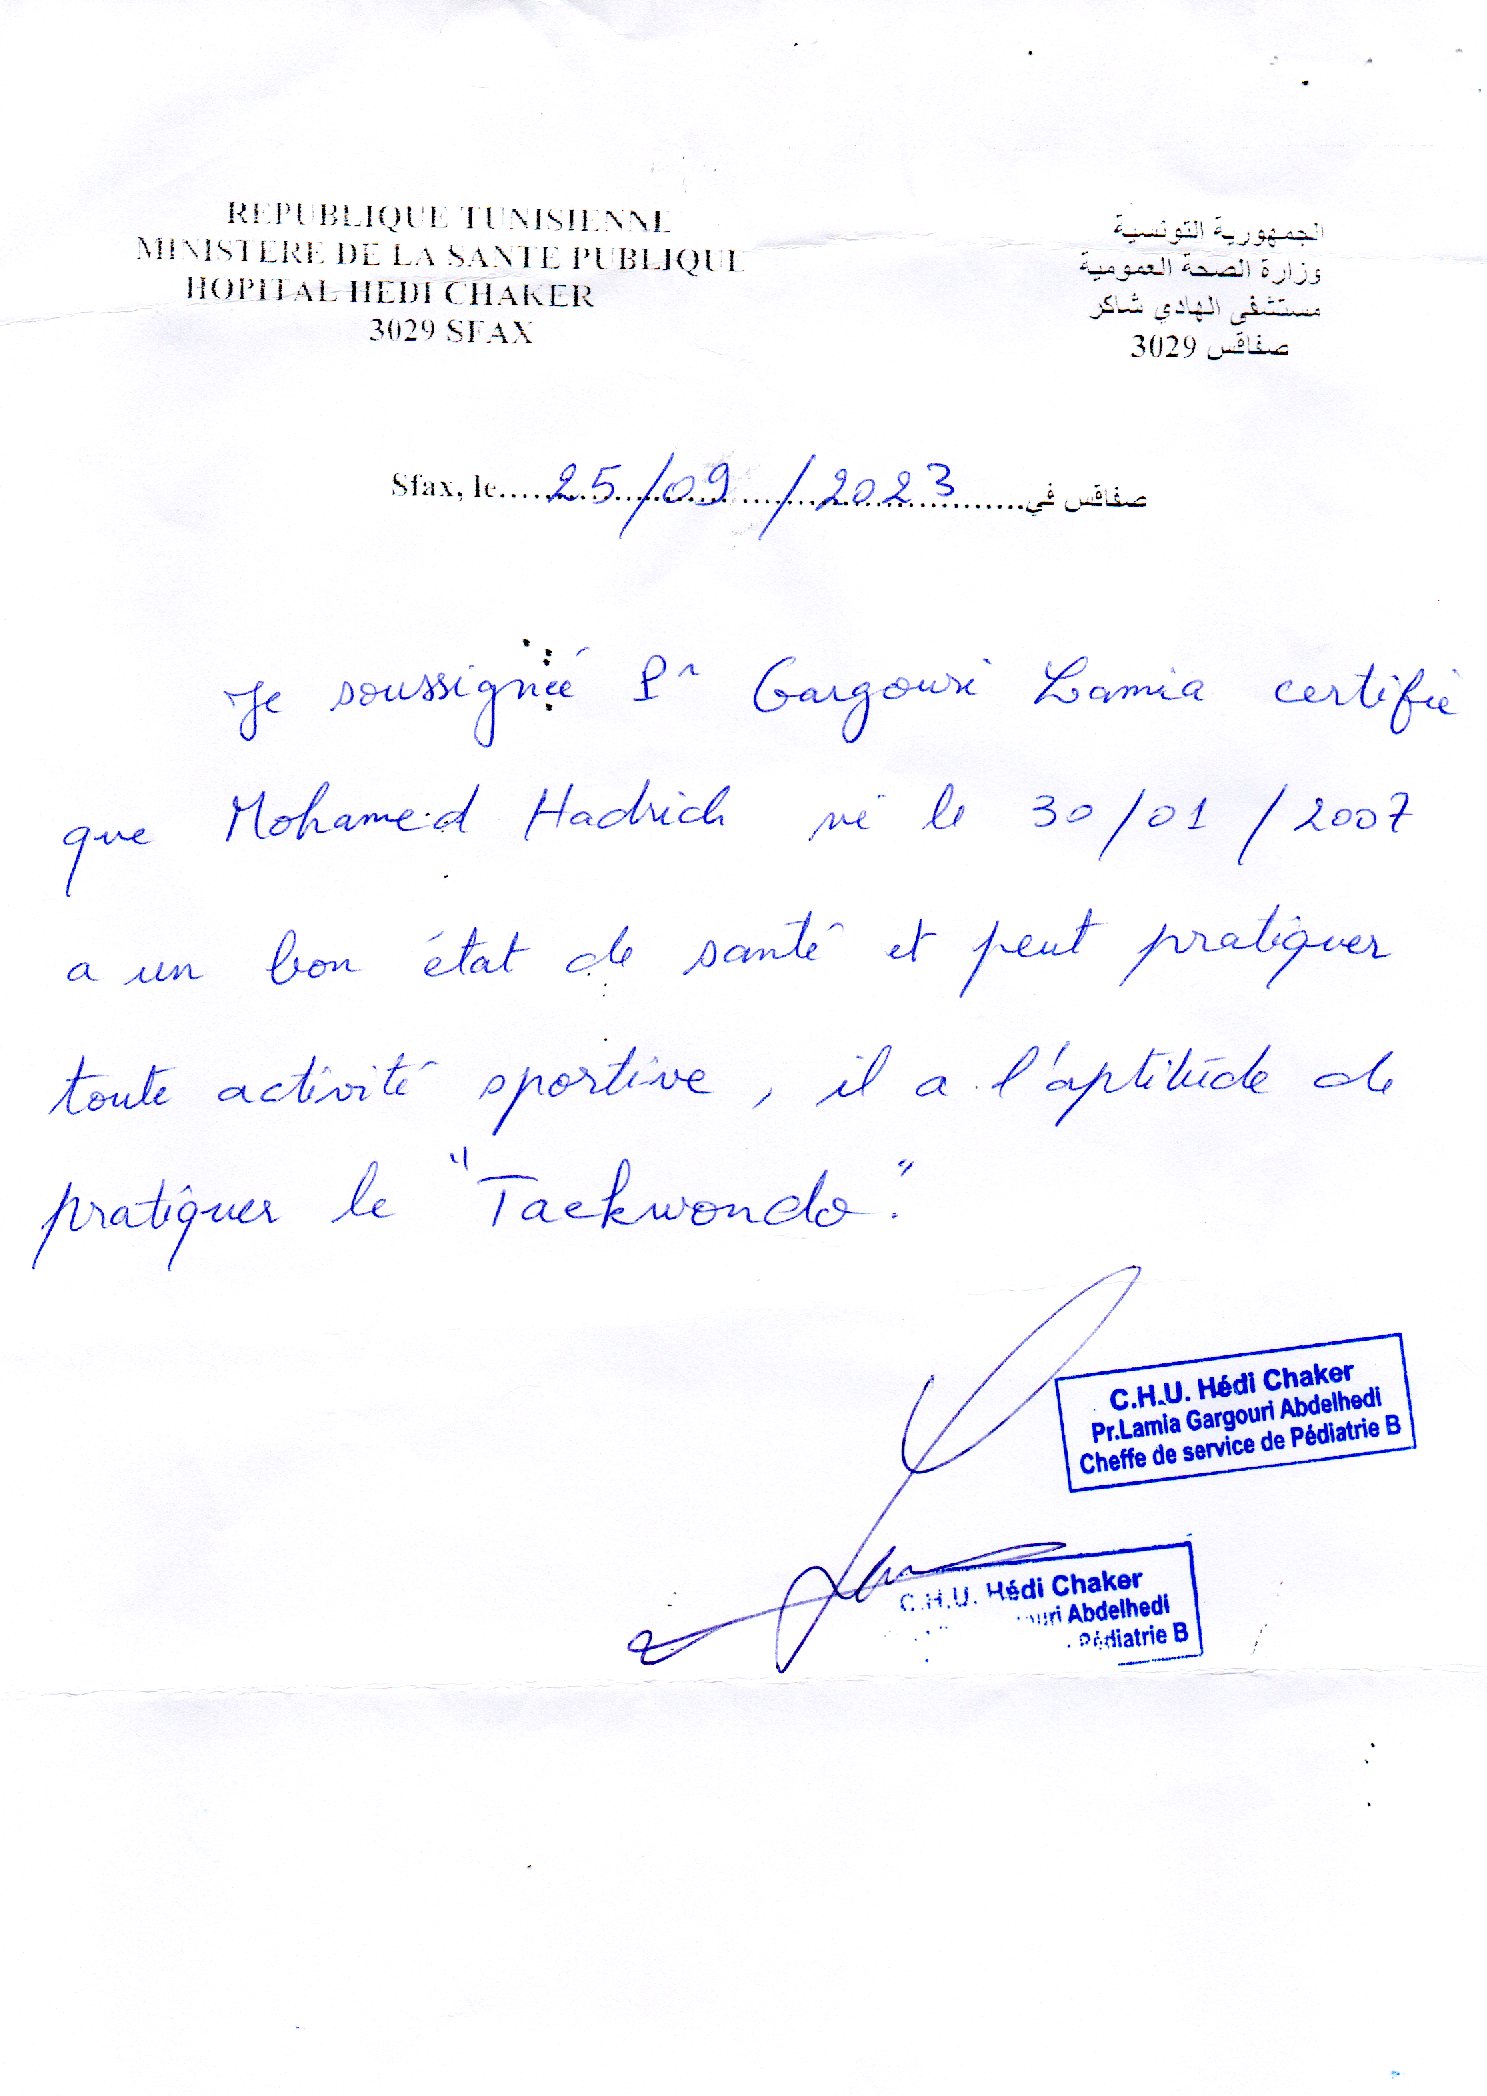 REPUBLIQUE TUNISIENNE
MINISTERE DE LA SANTE PUBLIQUE
HOPITAL HEDI CHAKER
3029 SFAX
الجمهورية التونسية
وزارة الصحة العمومية
مستشفى الهادي شاكر
صفاقس 3029
Sfax, le......25/09/2023......صفاقس في
Je soussignée Pr Gargouri Lamia certifie
que Mohamed Hadrich né le 30/01/2007
a un bon état de santé et peut pratiquer
toute activité sportive, il a l'aptitude de
pratiquer le "Taekwondo".
C.H.U. Hédi Chaker
Pr.Lamia Gargouri Abdelhedi
Cheffe de service de Pédiatrie B
C.H.U. Hédi Chaker
Abdelhedi
Pédiatrie B